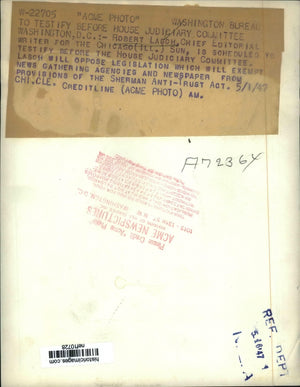 W-22705 "ACME PHOTO" WASHINGTON BUREAU
TO TESTIFY BEFORE HOUSE JUDICIARY COMMITTEE
WASHINGTON, D.C:- ROBERT LASCH, CHIEF EDITORIAL
WRITER FOR THE CHICAGO (ILL.) SUN, IS SCHEDULED TO
TESTIFY BEFORE THE HOUSE JUDICIARY COMMITTEE.
LASCH WILL OPPOSE LEGISLATION WHICH WILL EXEMPT
NEWS GATHERING AGENCIES AND NEWSPAPER FROM
PROVISIONS OF THE SHERMAN ANTI-TRUST ACT. 5/1/47
CHI.CLE. CREDITLINE (ACME PHOTO) AM.
A72364
Please Credit "Acme Photo"
ACME NEWSPICTURES
WASHINGTON, D.C.
REF. DEPT
historicimages.com
nef10728